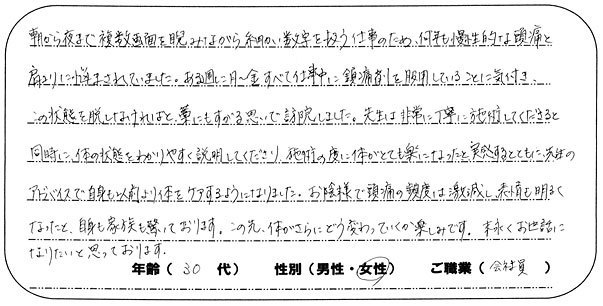 朝から夜まで複数画面を睨みながら細かい数字を扱う仕事のため、何年も慢性的な頭痛と
肩こりに悩まされていました。ある週に月〜金すべて仕事中に鎮痛剤を服用していることに気付き、
この状態を脱しなければと、藁にもすがる思いで訪院しました。先生は非常に丁寧に施術してくださると
同時に、体の状態をわかりやすく説明してくださり、施術の度に体がとても楽になったと実感するとともに、先生の
アドバイスで自身も以前より体をケアするようになりました。お陰様で頭痛の頻度は激減し、表情も明るく
なったと、自身も家族も驚いております。この先、体がさらにどう変わっていくか楽しみです。末永くお世話に
なりたいと思っております。
年齢（ 30 代） 性別（男性・女性） ご職業（ 会社員 ）